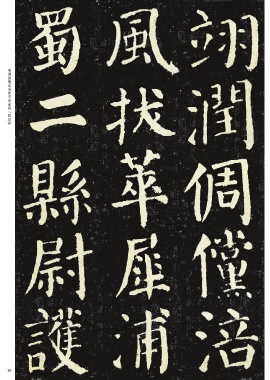 翊潤倜儻涪
風拔萃犀浦
蜀二縣尉護